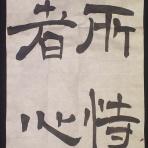 所恃
者心